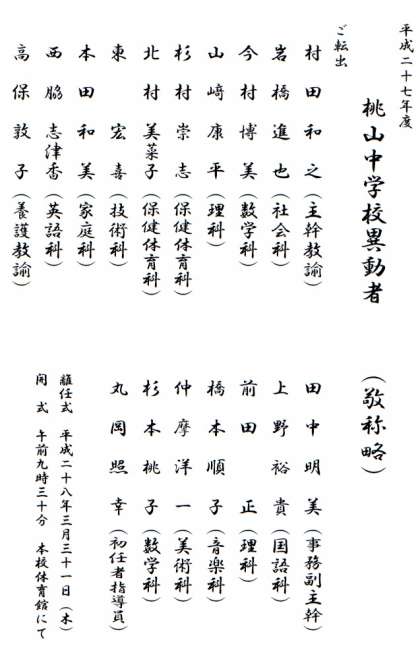 平成二十七年度
桃山中学校異動者 (敬称略)
ご転出
村田和之(主幹教諭)
岩橋進也(社会科)
今村博美(数学科)
山﨑康平(理科)
杉村崇志(保健体育科)
北村美菜子(保健体育科)
東宏喜(技術科)
本田和美(家庭科)
西脇志津香(英語科)
高保敦子(養護教諭)
田中明美(事務副主幹)
上野裕貴(国語科)
前田正(理科)
橋本順子(音楽科)
仲摩洋一(美術科)
杉本桃子(数学科)
丸岡照幸(初任者指導員)
離任式 平成二十八年三月三十一日(木)
開式 午前九時三十分 本校体育館にて